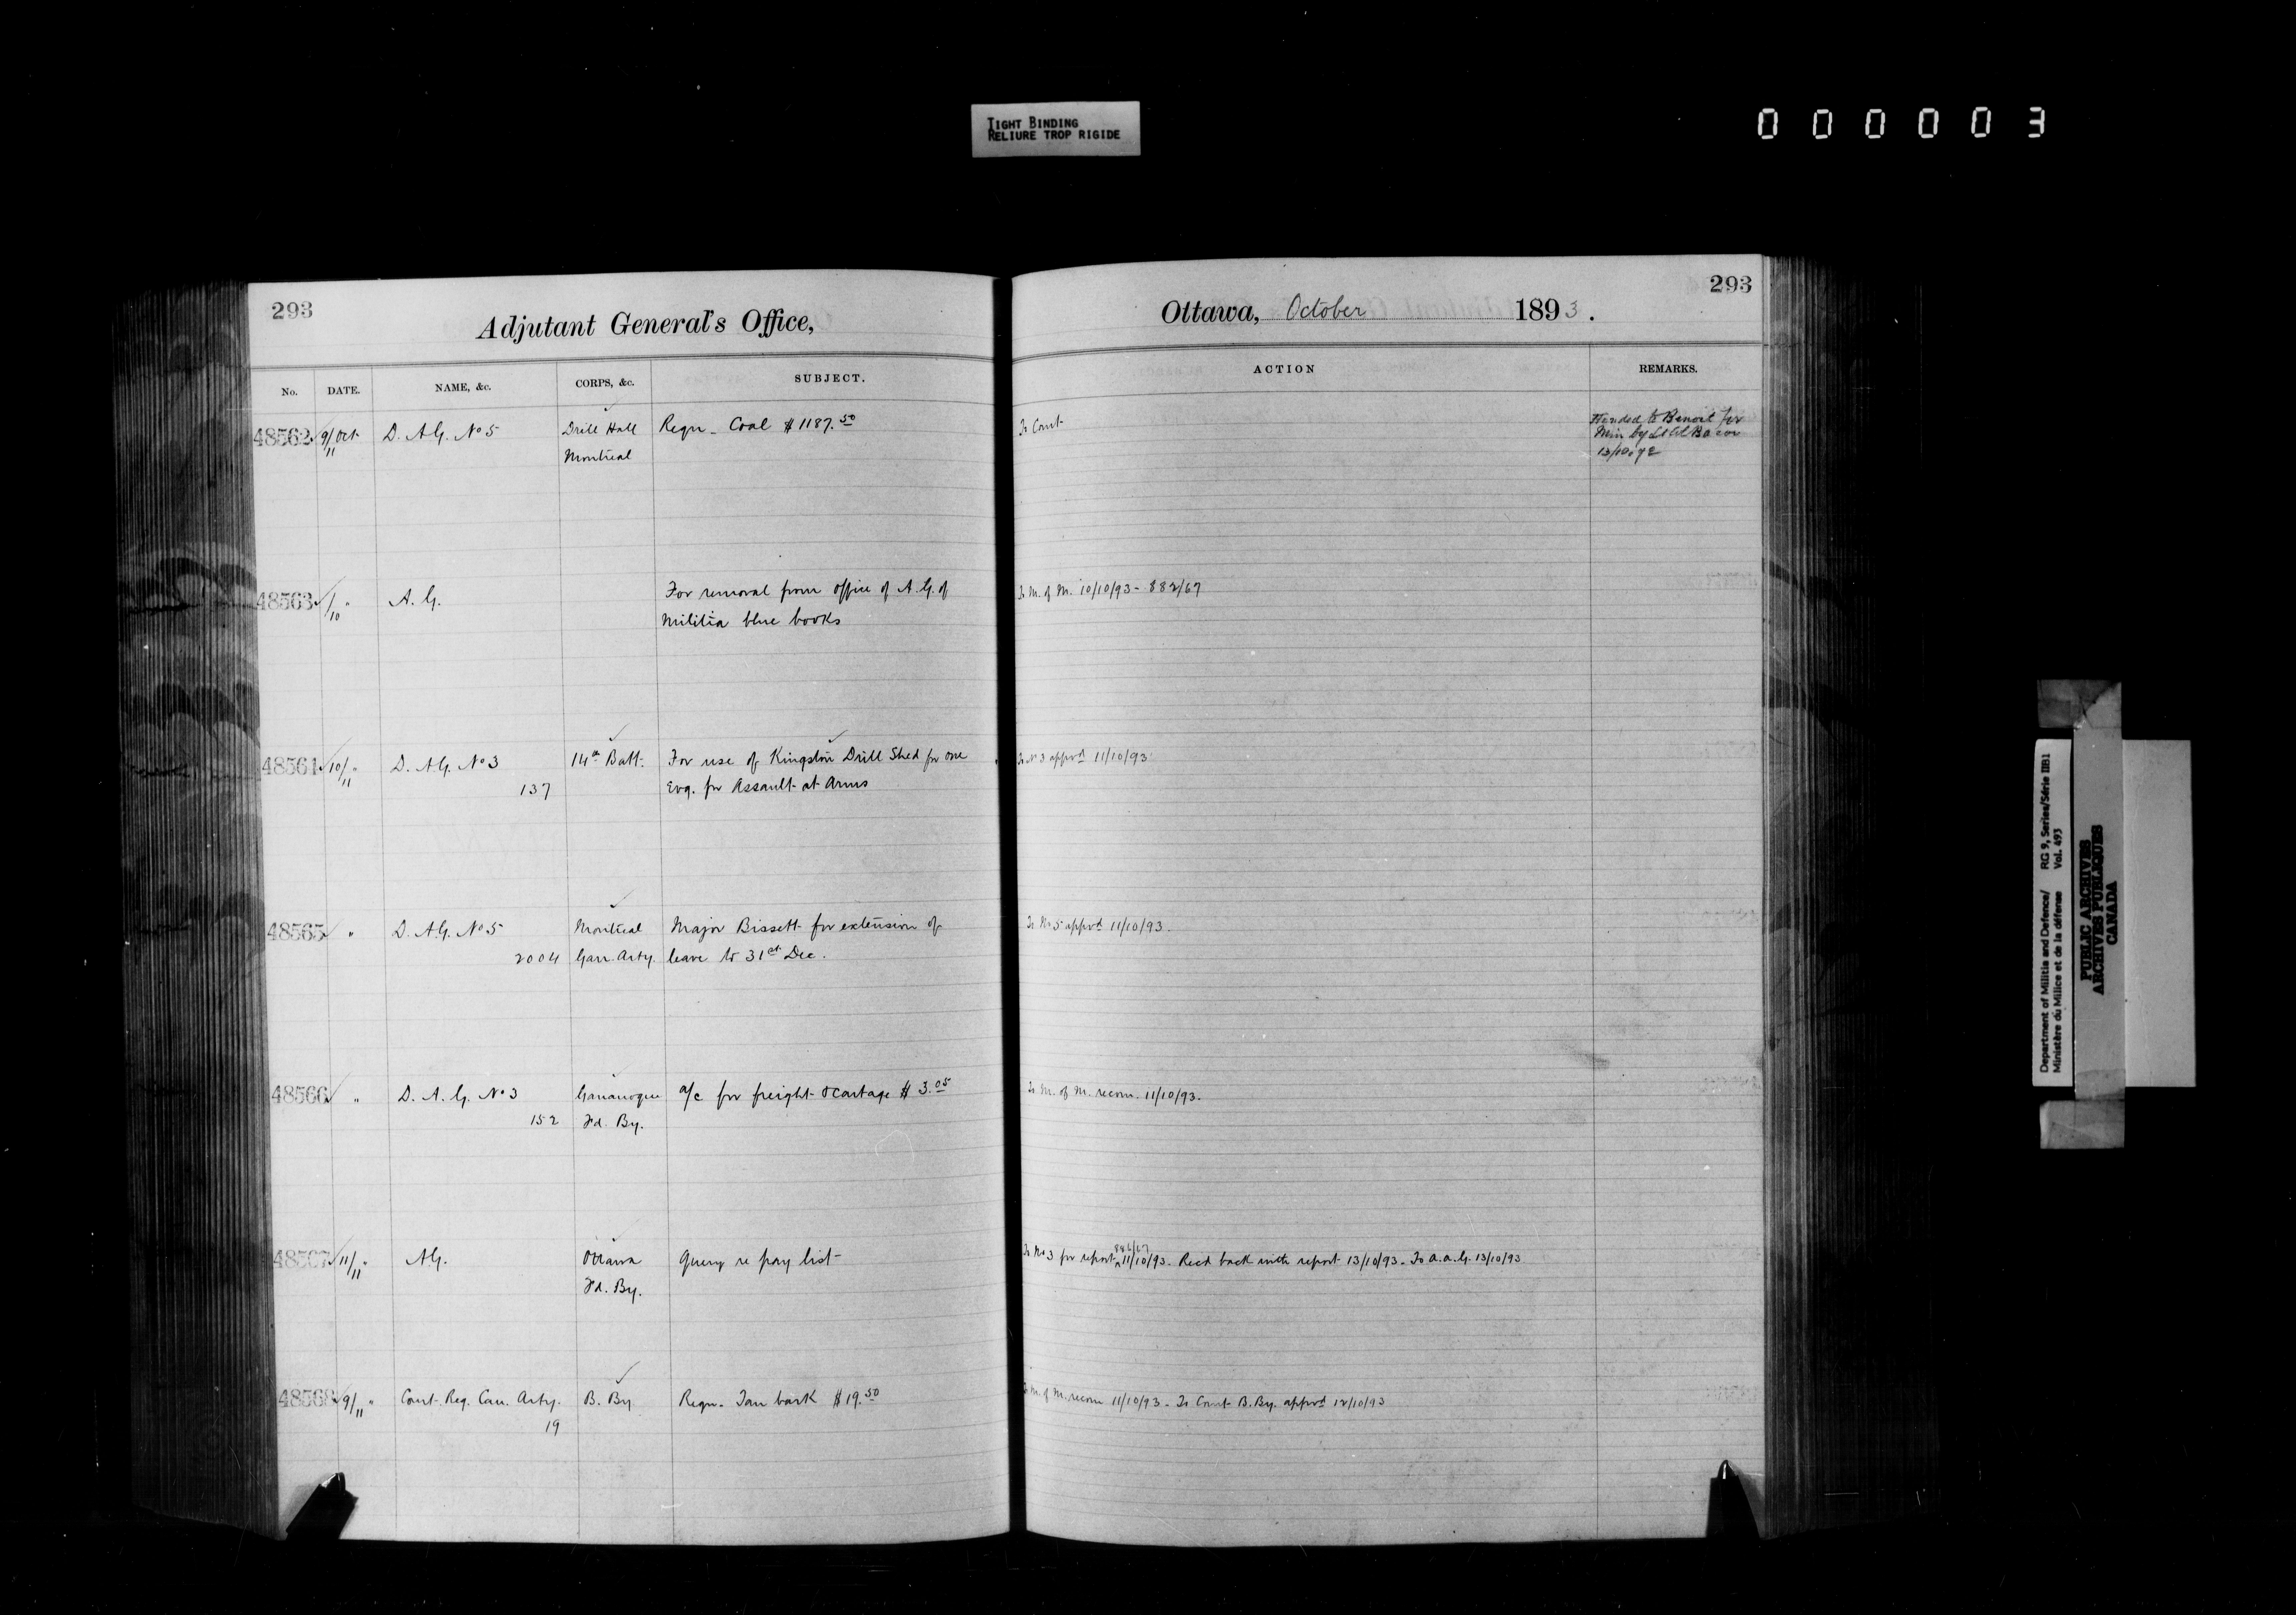 TIGHT BINDING
RELIURE TROP RIGIDE
0 0 0 0 0 3
293
Adjutant General's Office,
No. DATE. NAME, &c. CORPS, &c. SUBJECT.
48562 9/Oct D. A.G. No 5 Drill Hall Regn - Coal $1187.50
11 Montreal
48563 /10 " A. G. For removal from office of A. G. of
Militia blue books
48564 10/11 " D. A.G. No 3 14th Batt. For use of Kingston Drill Shed for one
137 Evg. for Assault-at-Arms
48565 " D. A.G. No 5 Montreal Major Bissett for extension of
2004 Garr. Arty. leave to 31st Dec.
48566 " D. A. G. No 3 Gananoque a/c for freight & Cartage $3.05
152 Fd. By.
48567 11/11 " A.G. Ottawa Query re pay list
Fd. By.
48568 9/11 " Comt. Reg. Can. Arty. B. By Regn. Tan bark $19.50
19
293
Ottawa, October 1893.
ACTION REMARKS.
To Comt Handed to Benoit for
Min by Lt Col Bacon
13/10
To M. of M. 10/10/93 - 882/67
To No 3 apprvd 11/10/93
To No 5 apprvd 11/10/93.
To M. of M. recom. 11/10/93.
To No 3 for report 11/10/93. Recd back with report 13/10/93. To A.A.G. 13/10/93
To M. of M. recom 11/10/93 - To Comt B. By. apprvd 12/10/93
Department of Militia and Defence/ RG 9, Series/Série IIB1
Ministère du Milice et de la défense Vol. 493
PUBLIC ARCHIVES
ARCHIVES PUBLIQUES
CANADA